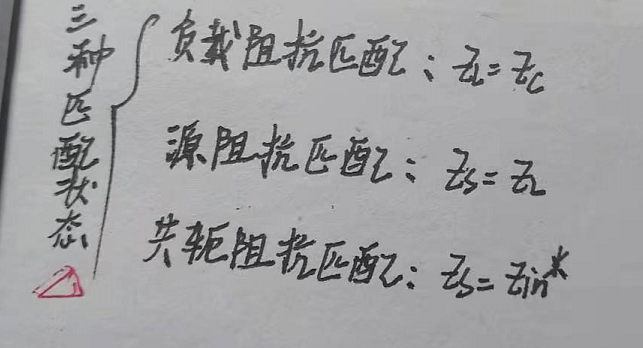 三种匹配状态
负载阻抗匹配：Z_L=Z_C
源阻抗匹配：Z_S=Z_L
共轭阻抗匹配：Z_S=Z_in*